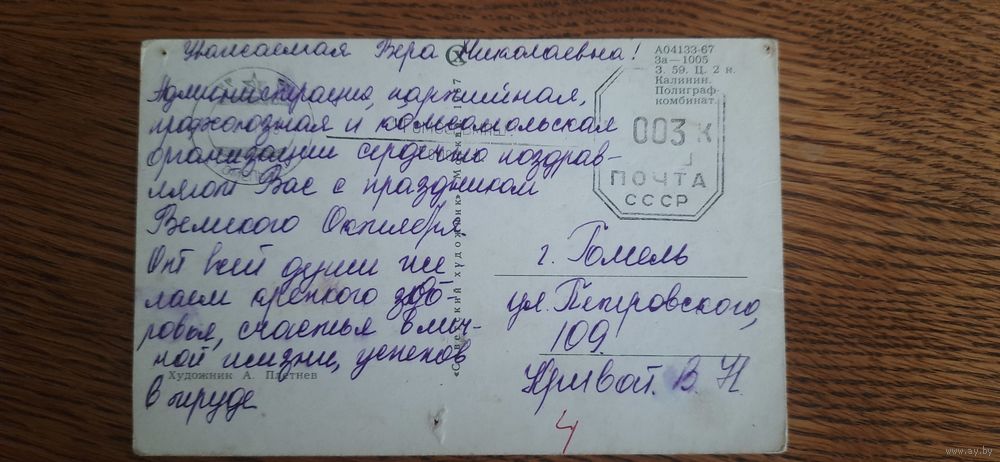 Уважаемая Вера Николаевна!
Администрация, партийная,
профсоюзная и комсомольская
организации сердечно поздрав-
ляют Вас с праздником
Великого Октября,
От всей души же-
лаем крепкого здо-
ровья, счастья в лич-
ной жизни, успехов
в труде
Художник А. Плетнев
«Советский художник» Москва 1967
А04133-67
За—1005
З. 59. Ц. 2 к.
Калинин.
Полиграф-
комбинат.
003 К
ПОЧТА
СССР
г. Гомель
ул. Петровского,
109.
Кривой. В. Н.
4
www.ay.by